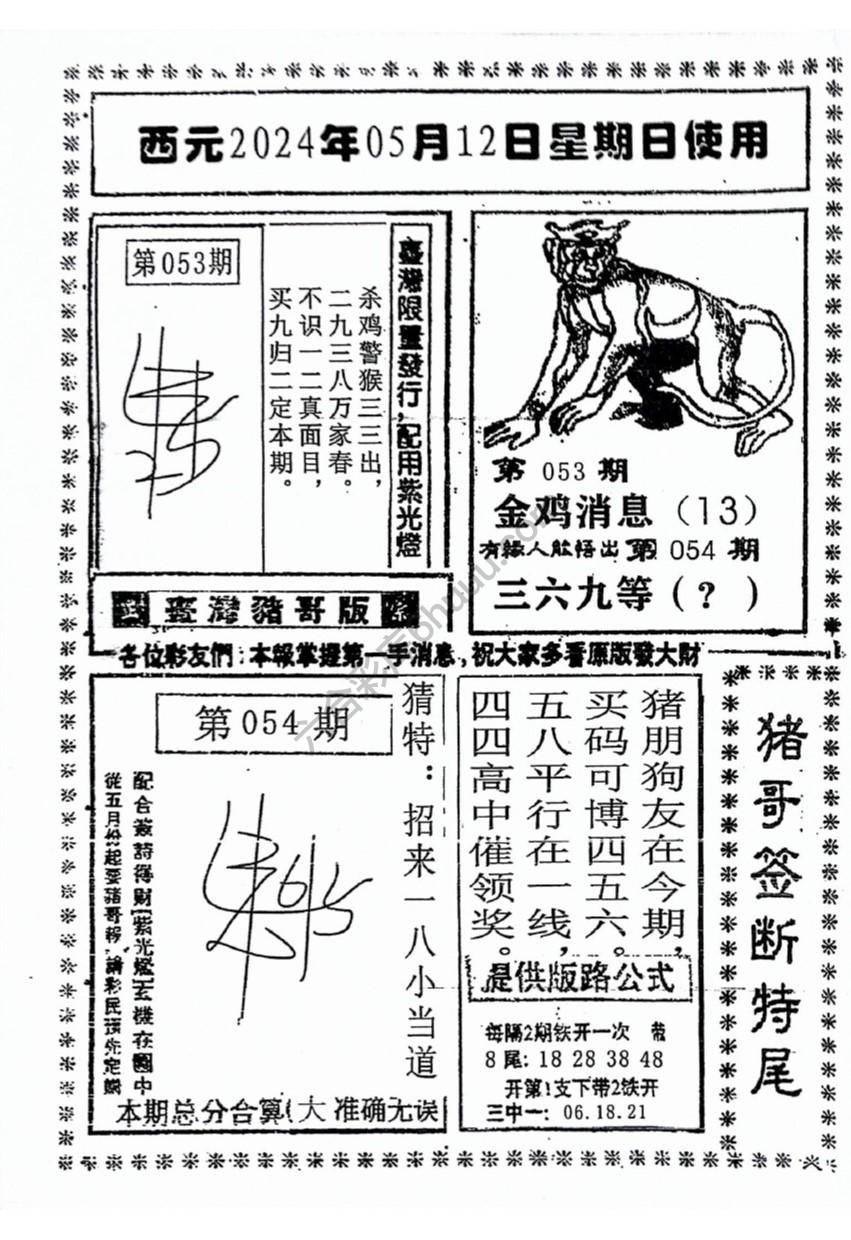 西元2024年05月12日星期日使用
第053期
臺灣限量發行,配用紫光燈
杀鸡警猴三三出,
二九三八万家春。
不识一二真面目,
买九归二定本期。
第 053 期
金鸡消息（13）
有緣人能悟出 第 054 期
三六九等（?）
臺灣豬哥版
各位彩友們:本報掌握第一手消息,祝大家多看原版發大財
第054期
猜特：招来一八小当道
配合簽詩得財[紫光燈]玄機在圖中
從五月份起要豬哥報,請彩民預先定購
本期总分合算(大 准确无误
猪朋狗友在今期,
买码可博四五六。
五八平行在一线,
四四高中催领奖。
提供版路公式
每隔2期铁开一次 带
8尾: 18 28 38 48
开第1支下带2铁开
三中一: 06.18.21
猪哥签断特尾